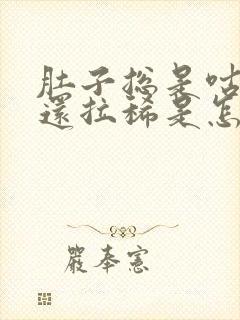 肚子總是咕
還拉稀是怎
嚴奉憲